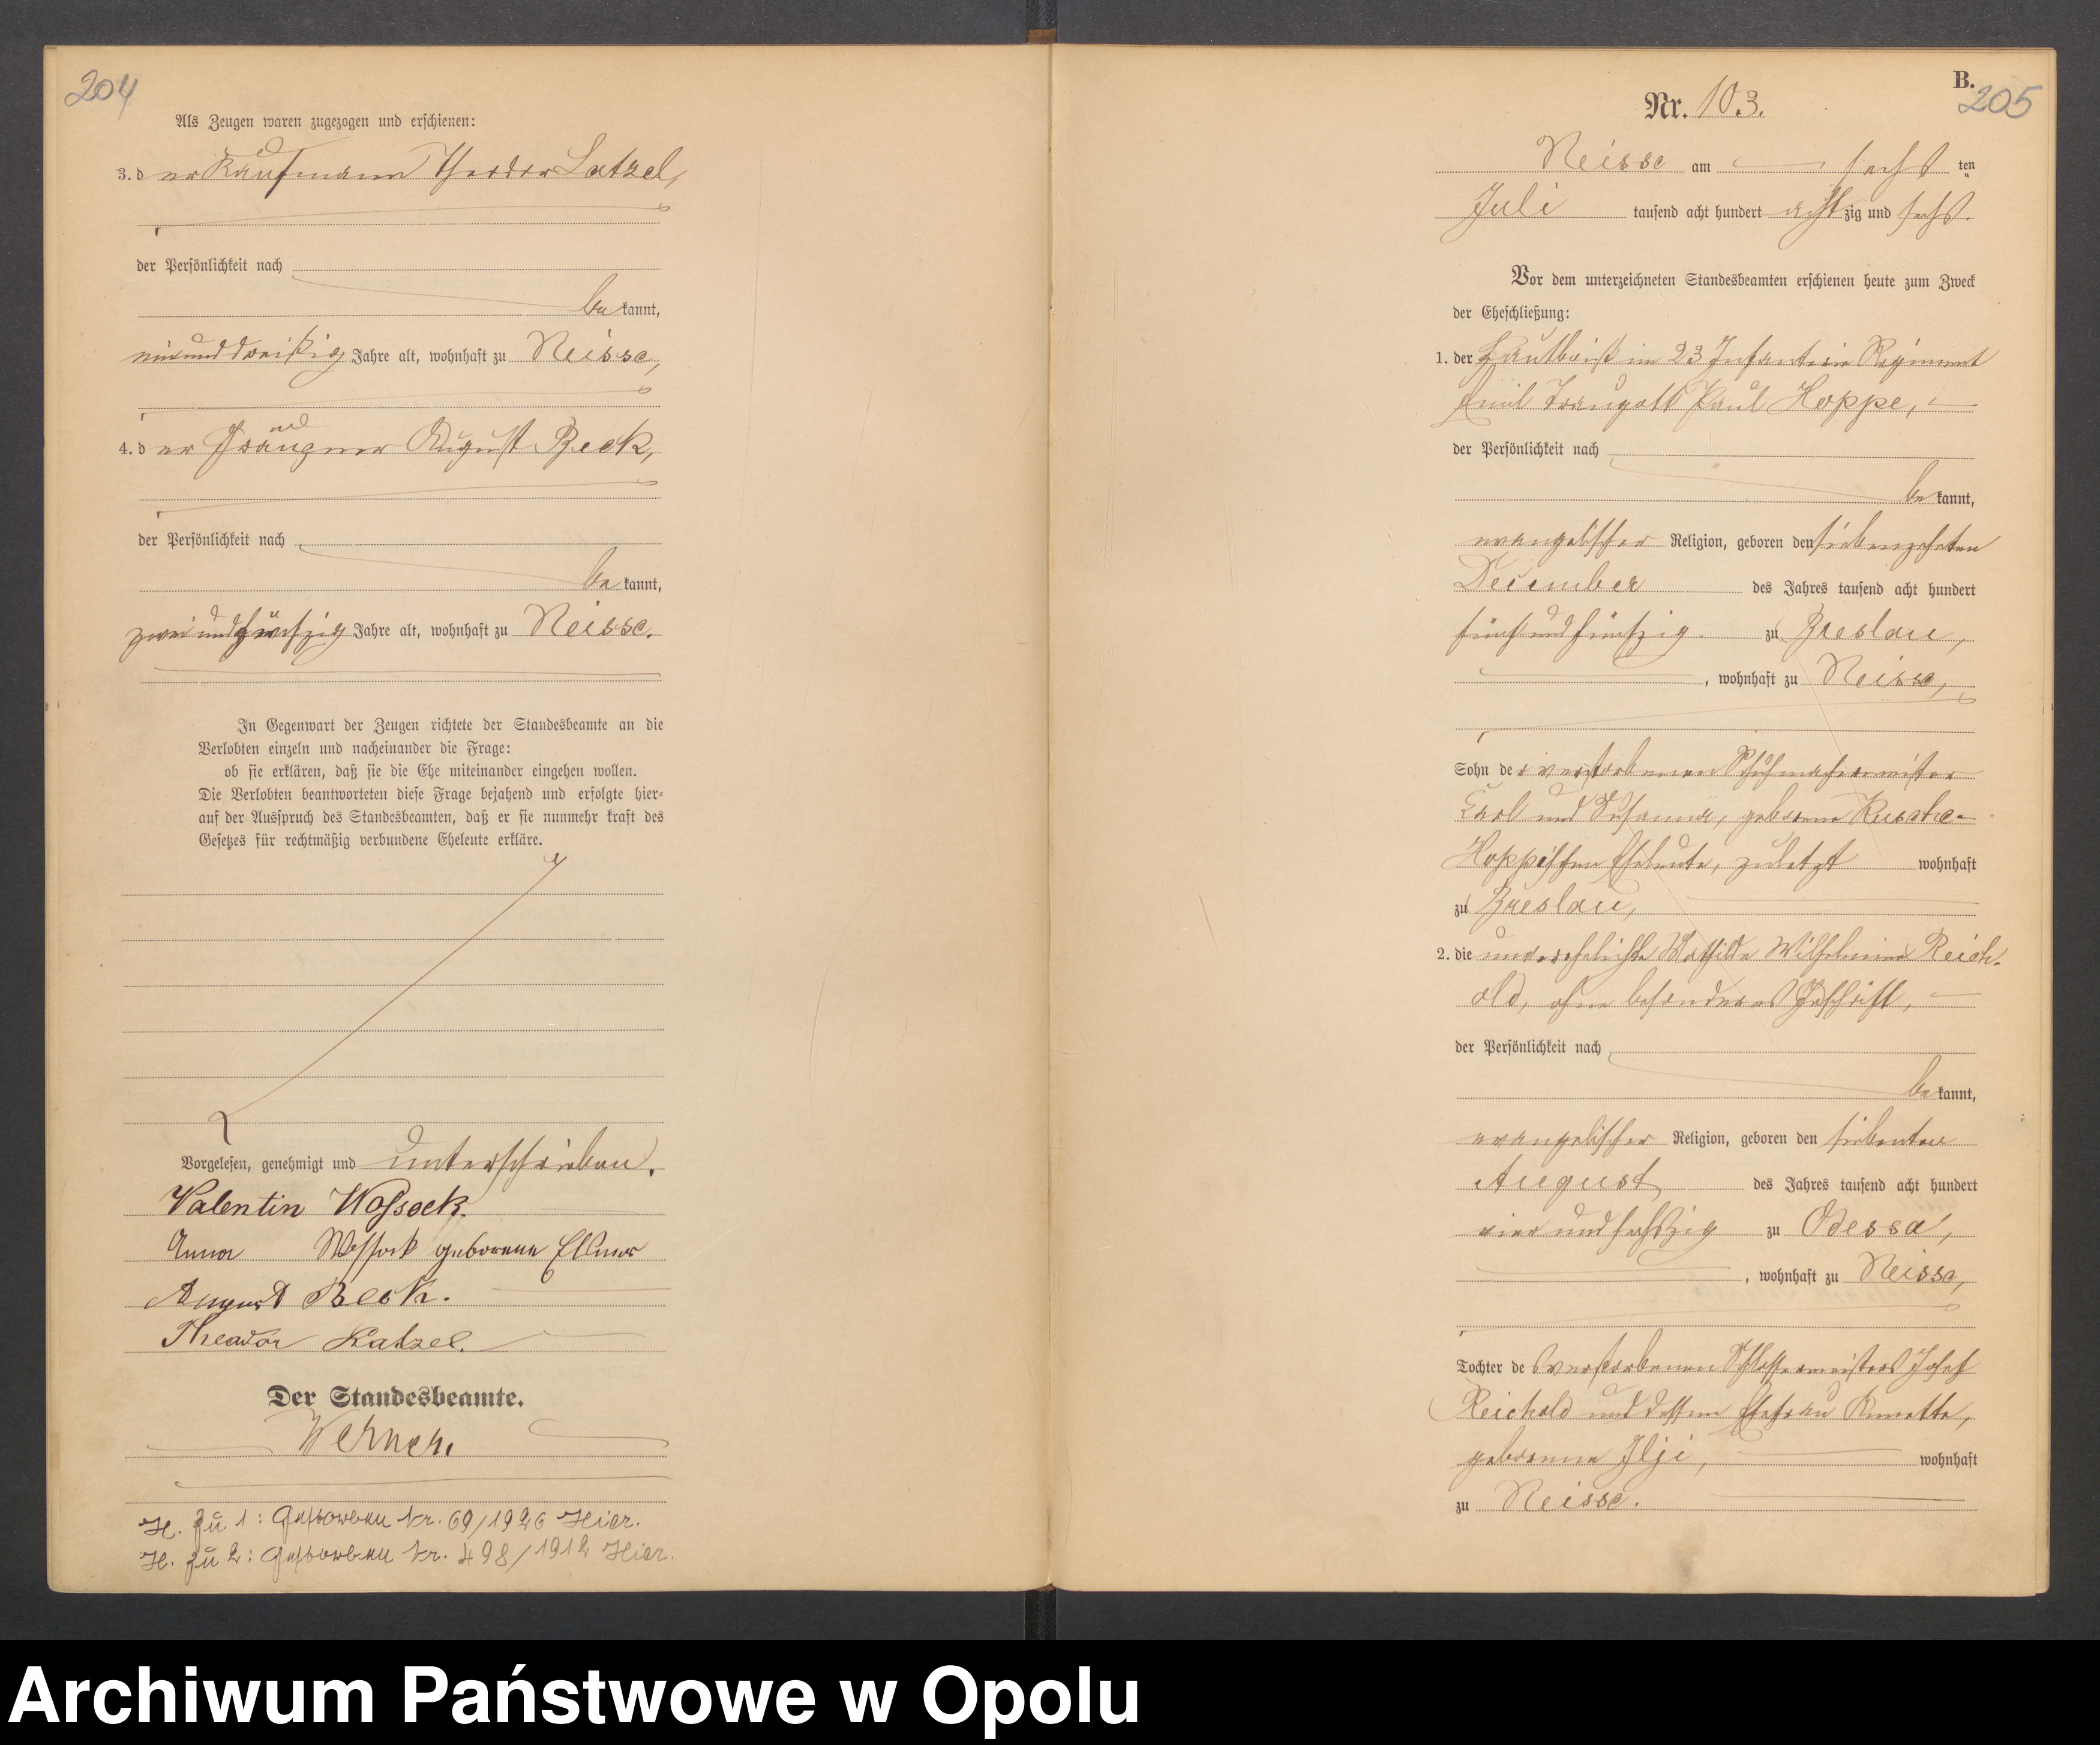 204
Als Zeugen waren zugezogen und erschienen:
3. der Kaufmann Theodor Latzel,
der Persönlichkeit nach
bekannt,
einunddreißig Jahre alt, wohnhaft zu Neisse,
und
4. der August Beck,
der Persönlichkeit nach
bekannt,
zweiundfünfzig Jahre alt, wohnhaft zu Neisse.
In Gegenwart der Zeugen richtete der Standesbeamte an die
Verlobten einzeln und nacheinander die Frage:
ob sie erklären, daß sie die Ehe miteinander eingehen wollen.
Die Verlobten beantworteten diese Frage bejahend und erfolgte hier-
auf der Ausspruch des Standesbeamten, daß er sie nunmehr kraft des
Gesetzes für rechtmäßig verbundene Eheleute erkläre.
Vorgelesen, genehmigt und unterschrieben.
Valentin Wossock
Anna Wossock geborene Elsner
August Beck.
Theador Latzel.
Der Standesbeamte.
Werner.
H. zu 1: Gestorben Nr. 69/1926 Hier.
H. zu 2: Gestorben Nr. 498/1912 Hier.
B.
205
Nr. 103.
Neisse am sechsten
Juli tausend acht hundert achtzig und sechs.
Vor dem unterzeichneten Standesbeamten erschienen heute zum Zweck
der Eheschließung:
1. der im 23 Infanterie Regiment
Emil Traugott Paul Hoppe,
der Persönlichkeit nach
bekannt,
evangelischer Religion, geboren den siebenzehnten
December des Jahres tausend acht hundert
fünfundfünfzig zu Breslau,
, wohnhaft zu Neisse,
Sohn der verstorbenen Schuhmachermeister
Carl und Susanna, geborene Rusche-
Hoppe'schen Eheleute, zuletzt wohnhaft
zu Breslau,
2. die unverehelichte Mathilde Wilhelmine Reich-
old, ohne besonderes Geschäft,
der Persönlichkeit nach
bekannt,
evangelischer Religion, geboren den siebenten
August des Jahres tausend acht hundert
vier und sechszig zu Odessa,
, wohnhaft zu Neisse,
Tochter des verstorbenen Schlossermeisters Josef
Reichold und dessen Ehefrau Annette,
geborene Ilji, wohnhaft
zu Neisse.
Archiwum Państwowe w Opolu